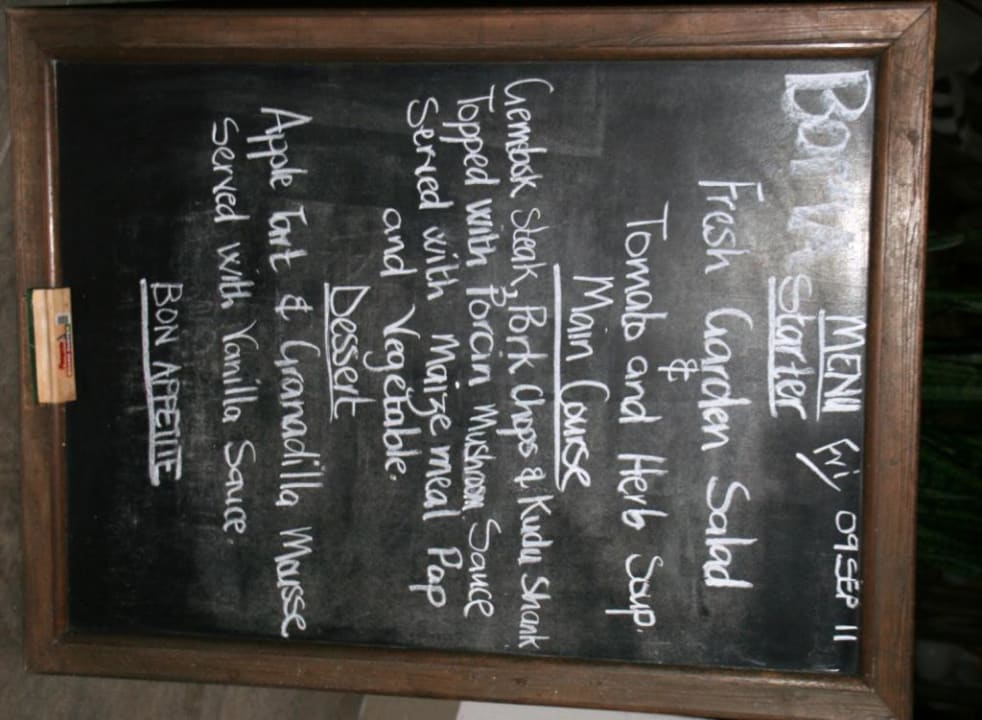 MENU Fri, 09 SEP 11
Starter
Fresh Garden Salad
&
Tomato and Herb Soup.
Main Course
Gembok Steak, Pork Chops & Kudu Shank
Topped with Porcin Mushroom Sauce
Served with Maize meal Pap
and Vegetable.
Dessert
Apple Tart & Granadilla Mousse
Served with Vanilla Sauce.
BON APPETITE